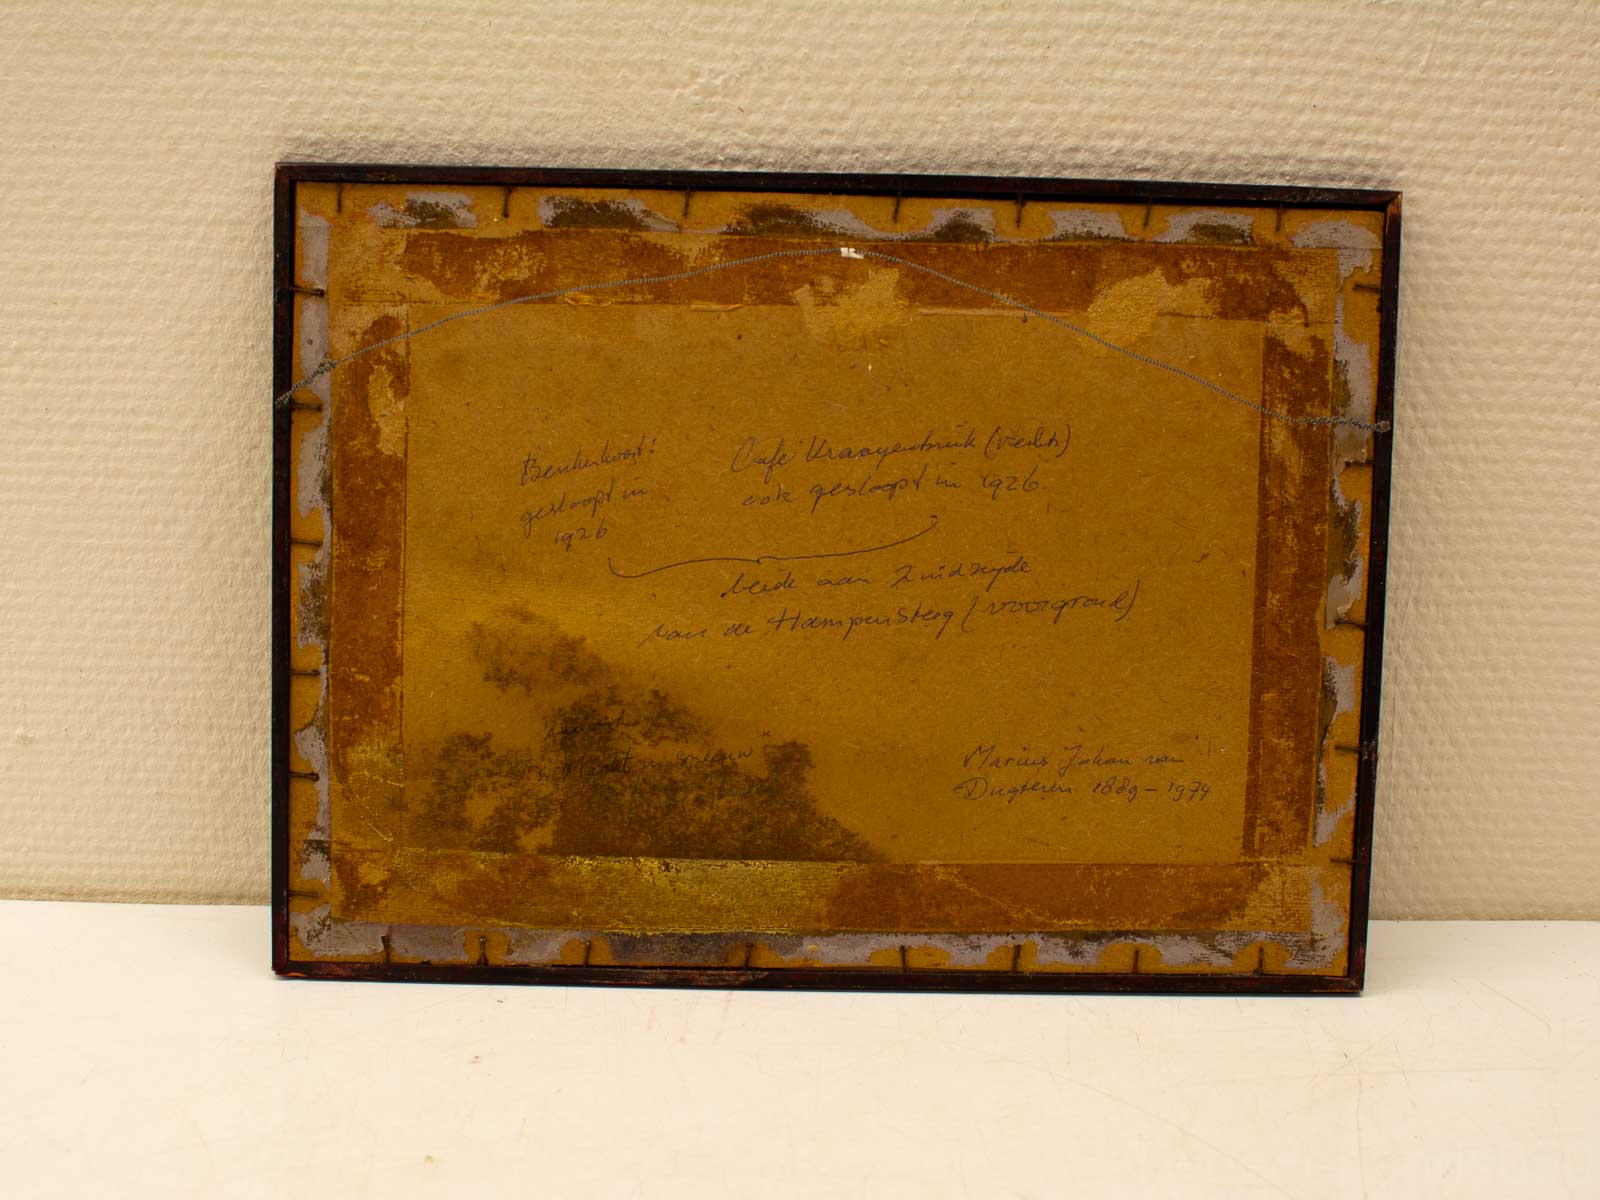 gesloopt in
1926
Café Kraayenbrink (rechts)
ook gesloopt in 1926.
beide aan Zuidzijde
van de Hampensteeg (voorgrond)
Markt in sneeuw"
Marius Johan van
Dugteren 1889 - 1974